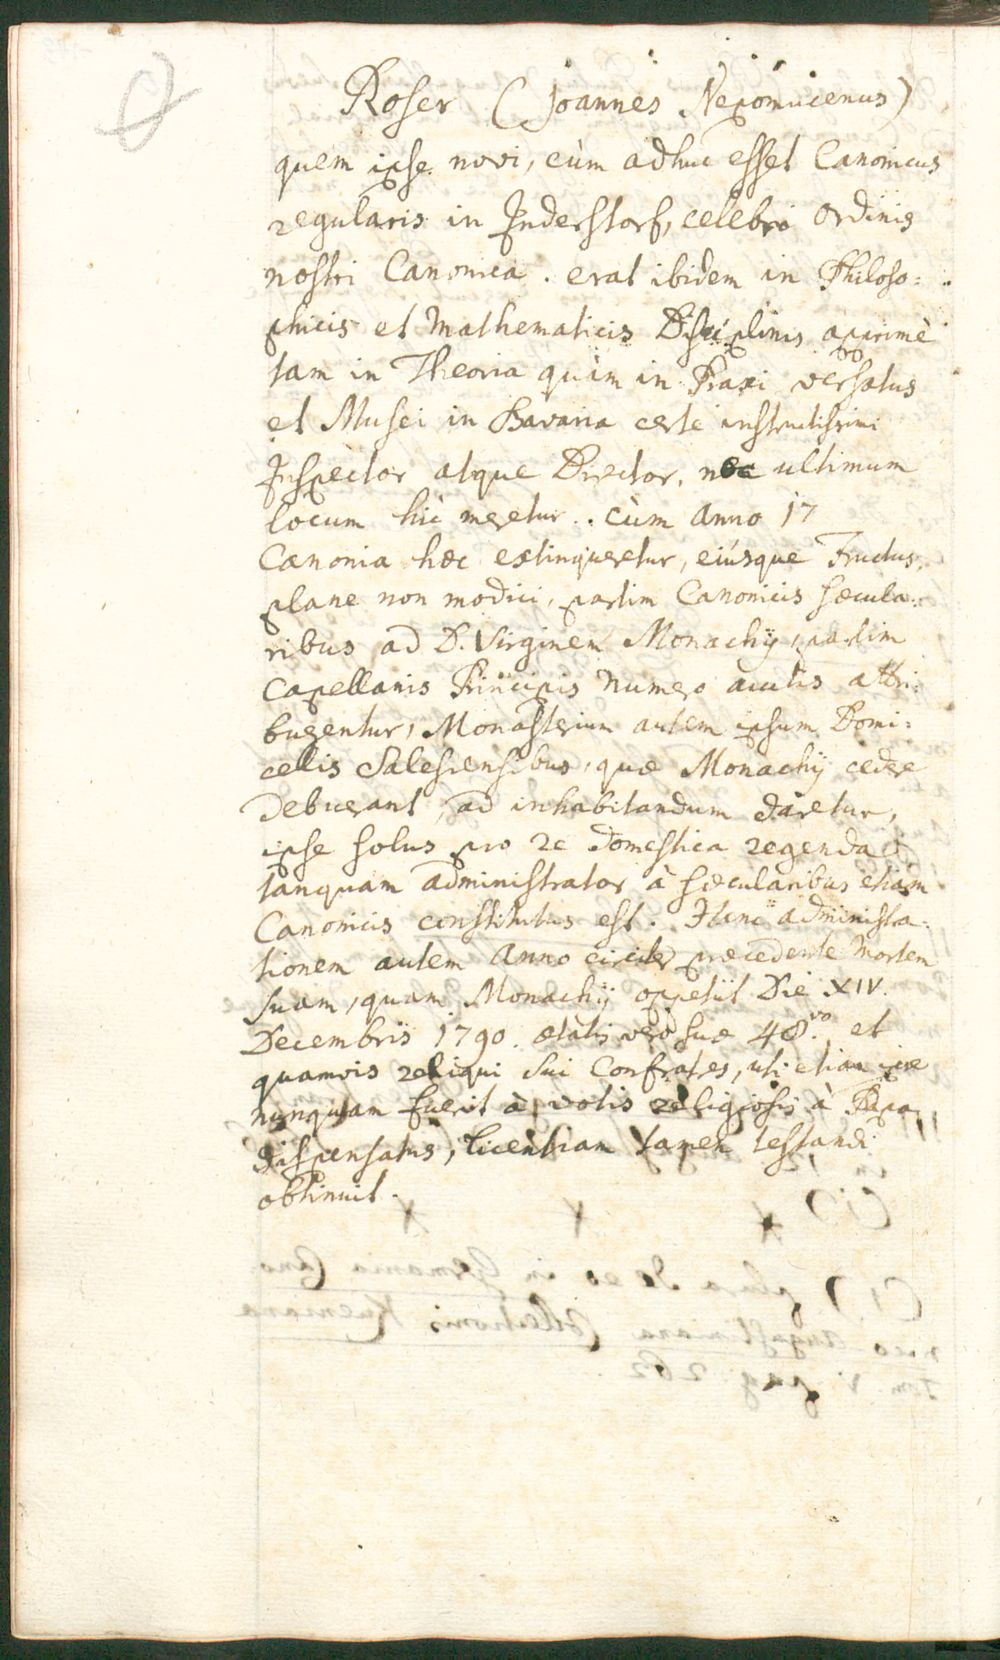 Roser (Joannes Nepomucenus)
quem ipse novi, cùm adhuc esset Canonicus
regularis in Inderstorf, celebri Ordinis
nostri Canonica. erat ibidem in Philoso=
phicis et Mathematicis Disciplinis apprimè
tam in Theoria quàm in Praxi versatus
et Musei in Bavaria certe instructissimi
Inspector atque Director, nec ultimum
locum hîc meretur. cùm anno 17
Canonia hæc extingueretur, eiusque Fructus,
plane non modici, partim Canonicis sæcula=
ribus ad D. Virginem Monachij, partim
Capellanis Principis numero auctis attri=
buerentur, Monasterium autem ipsum Domi=
cellis Salesiensibus, quæ Monachij cedere
debuerant, ad inhabitandum daretur,
ipse solus pro re domestica regenda
tanquam administrator à sæcularibus etiam
Canonicis constitutus est. Hanc administra=
tionem autem anno circiter præcedente mortem
suam, quam Monachij oppetiit Die XIV.
Decembris 1790. ætatis vero suæ 48.vo et
quamvis reliqui sui Confratres, uti etiam ipse
nunquam fuerit à votis religiosis à Papa
dispensatus, licentiam tamen testandi
obtinuit.